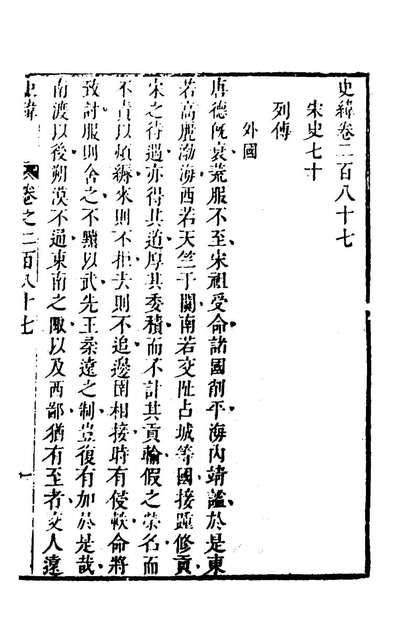 史緯卷二百八十七
宋史七十
列傳
外國
唐德旣衰荒服不至宋祖受命諸國削平海內靖謐於是東
若高麗渤海西若天竺于闐南若交阯占城等國接踵修貢
宋之待遇亦得其道厚其委積而不計其貢輸假之榮名而
不責以煩縟來則不拒去則不追邊圉相接時有侵軼命將
致討服則舍之不黷以武先王柔遠之制豈復有加於是哉
南渡以後朔漠不通東南之陬以及西鄙猶有至者交人遠
史緯
卷之二百八十七
一